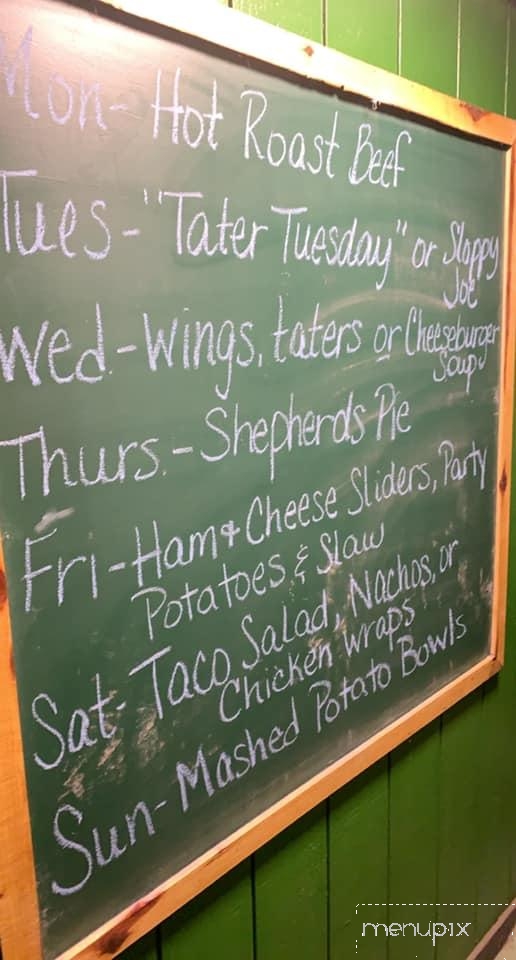 Mon- Hot Roast Beef
Tues- "Tater Tuesday" or Sloppy
Joe
Wed- Wings, taters or Cheeseburger
Soup
Thurs.- Shepherds Pie
Fri- Ham & Cheese Sliders, Party
Potatoes & Slaw
Sat- Taco Salad, Nachos, or
Chicken Wraps
Sun- Mashed Potato Bowls
menupix